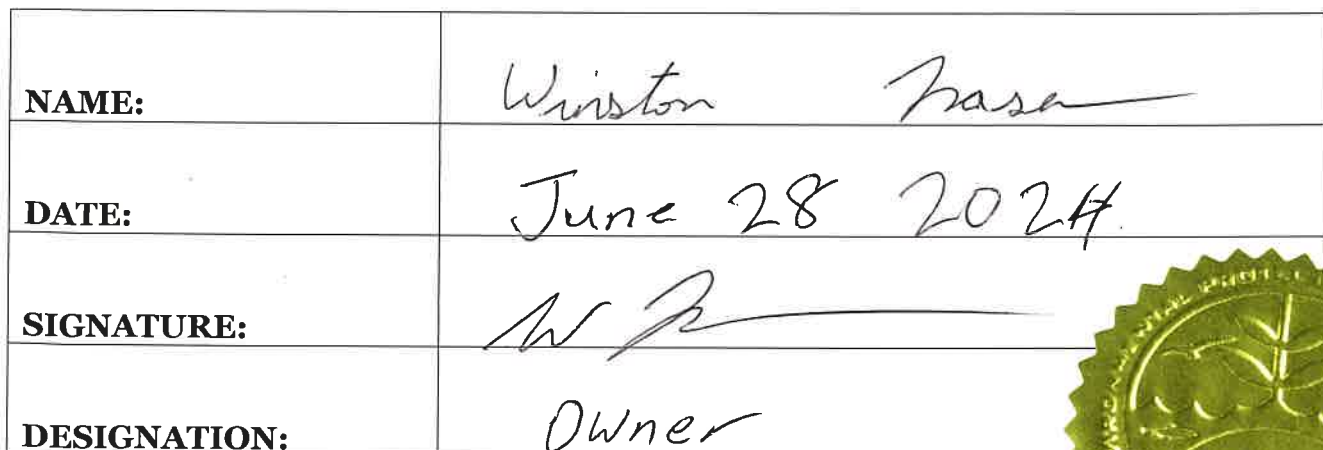 NAME: Winston
DATE: June 28 2024.
SIGNATURE:
DESIGNATION: Owner